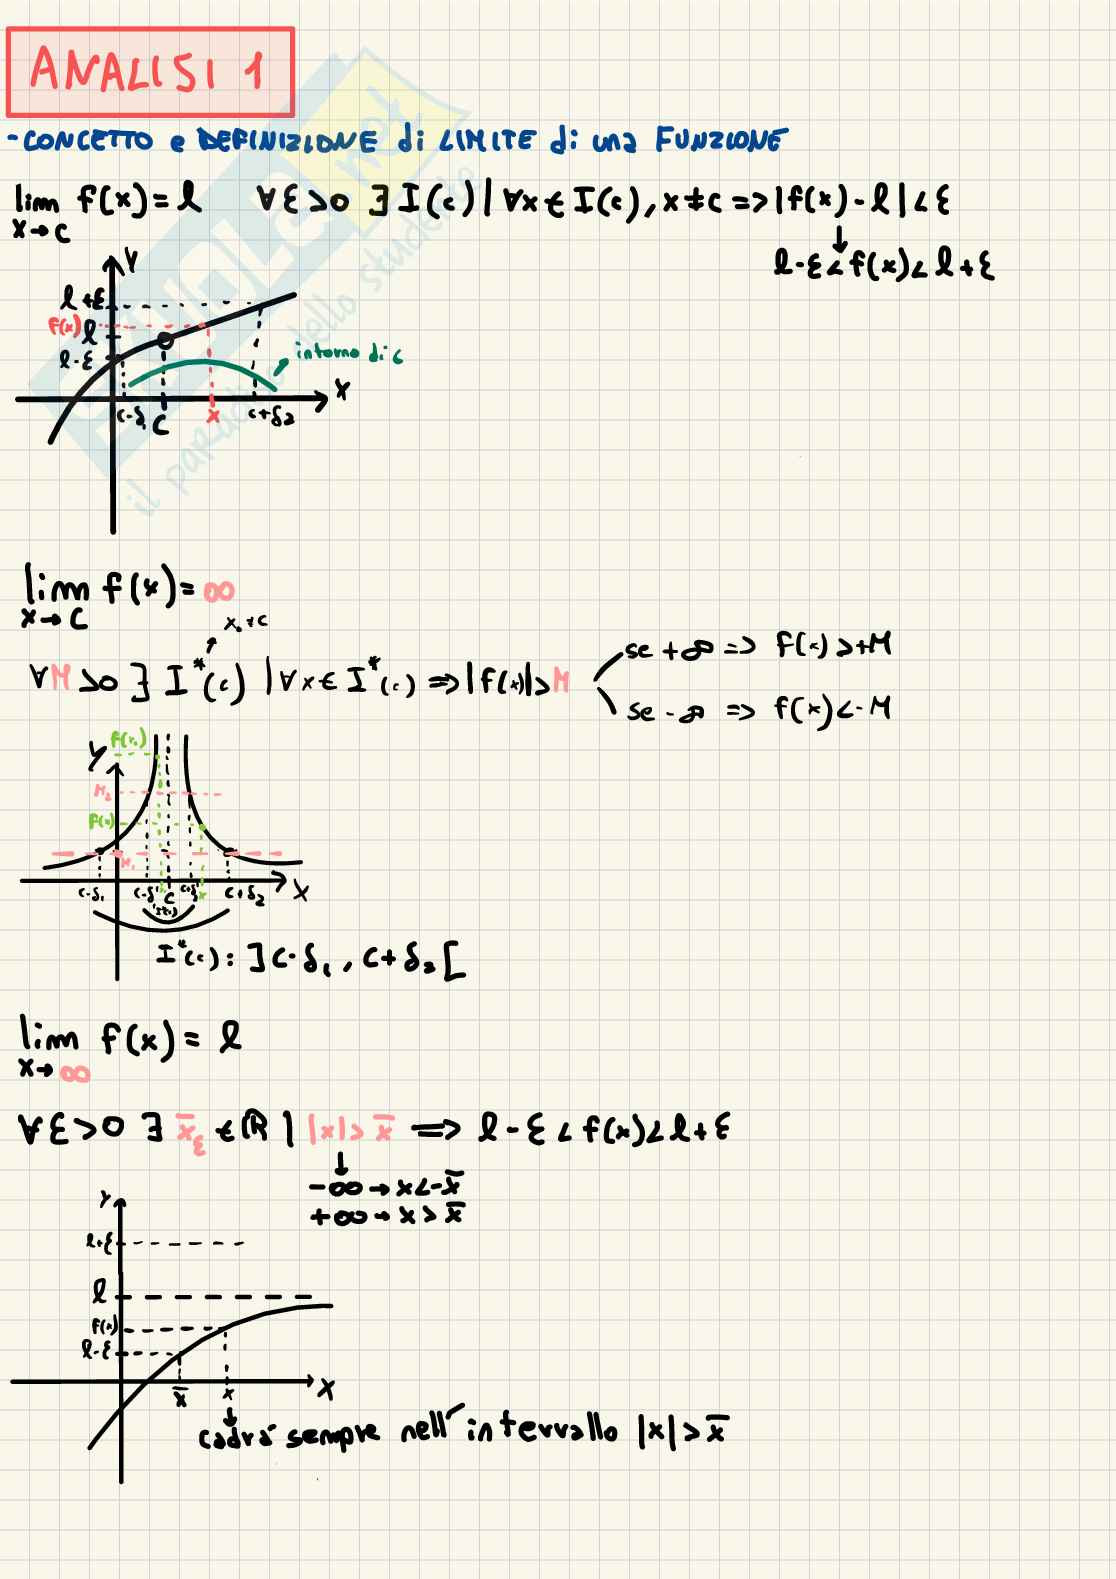 ANALISI 1
-CONCETTO e DEFINIZIONE di LIMITE di una FUNZIONE
lim f(x) = l ∀ε>0 ∃ I(c) | ∀x∈I(c), x≠c => |f(x)-l|<ε
x→c
↓
l-ε<f(x)<l+ε
Y
l+ε
f(x) l
l-ε
intorno di c
X
c-δ₁ c x c+δ₂
il paradiso dello studente
lim f(x) = ∞
x→c
x₀≠c
∀M>0 ∃ I*(c) | ∀x∈I*(c) => |f(x)|>M
se +∞ => f(x)>+M
se -∞ => f(x)<-M
f(x₁)
Y
M₂
f(x)
M₁
c-δ₁ c-δ' c c+δ' x c+δ₂ X
I*(c): ]c-δ₁, c+δ₂[
lim f(x) = l
x→∞
∀ε>0 ∃ x̄_ε ∈ ℝ | |x|>x̄ => l-ε<f(x)<l+ε
↓
-∞→x<-x̄
+∞→x>x̄
Y
l+ε
l
f(x)
l-ε
x̄ x X
↓
cadrà sempre nell'intervallo |x|>x̄